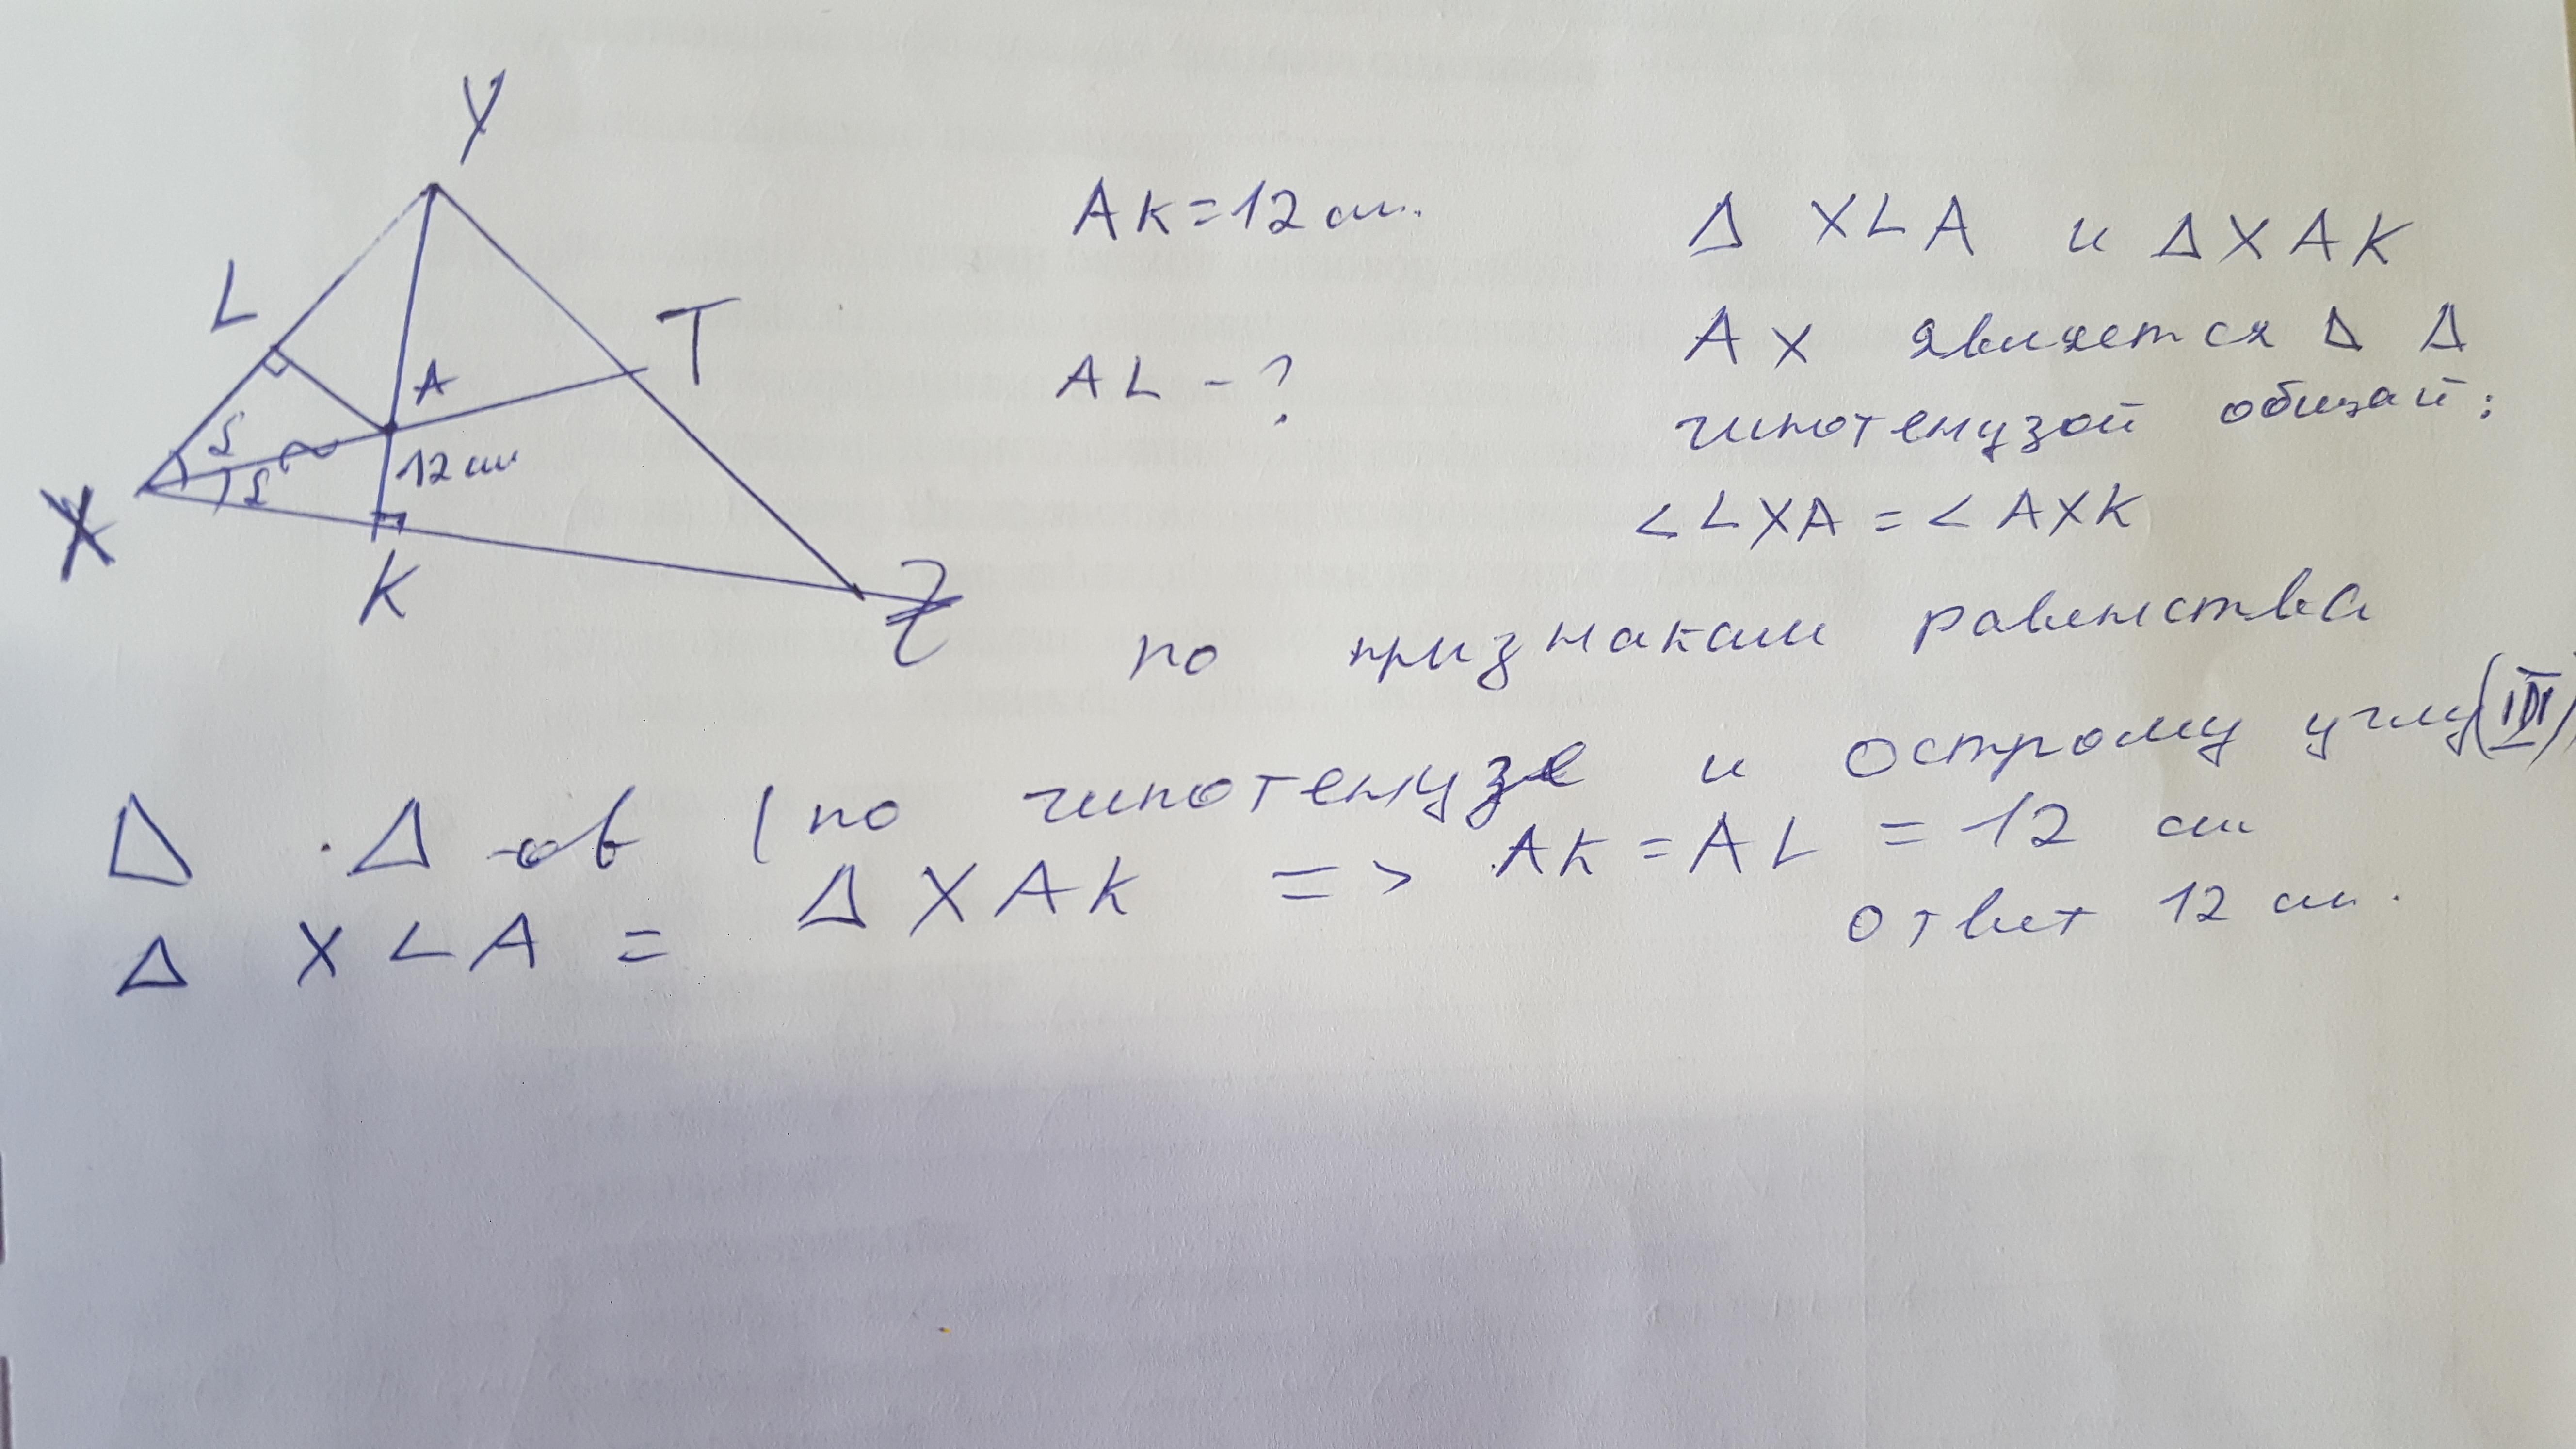 Y
L
T
A
S
S
12 см
X
K
Z
AK = 12 см.
AL - ?
Δ XLA и Δ XAK
AX является Δ Δ
гипотенузой общай;
< LXA = < AXK
по признакам равенства
Δ Δ-ов (по гипотенузе и острому углу (III)
Δ XLA = Δ XAK => AK = AL = 12 см
ответ 12 см.